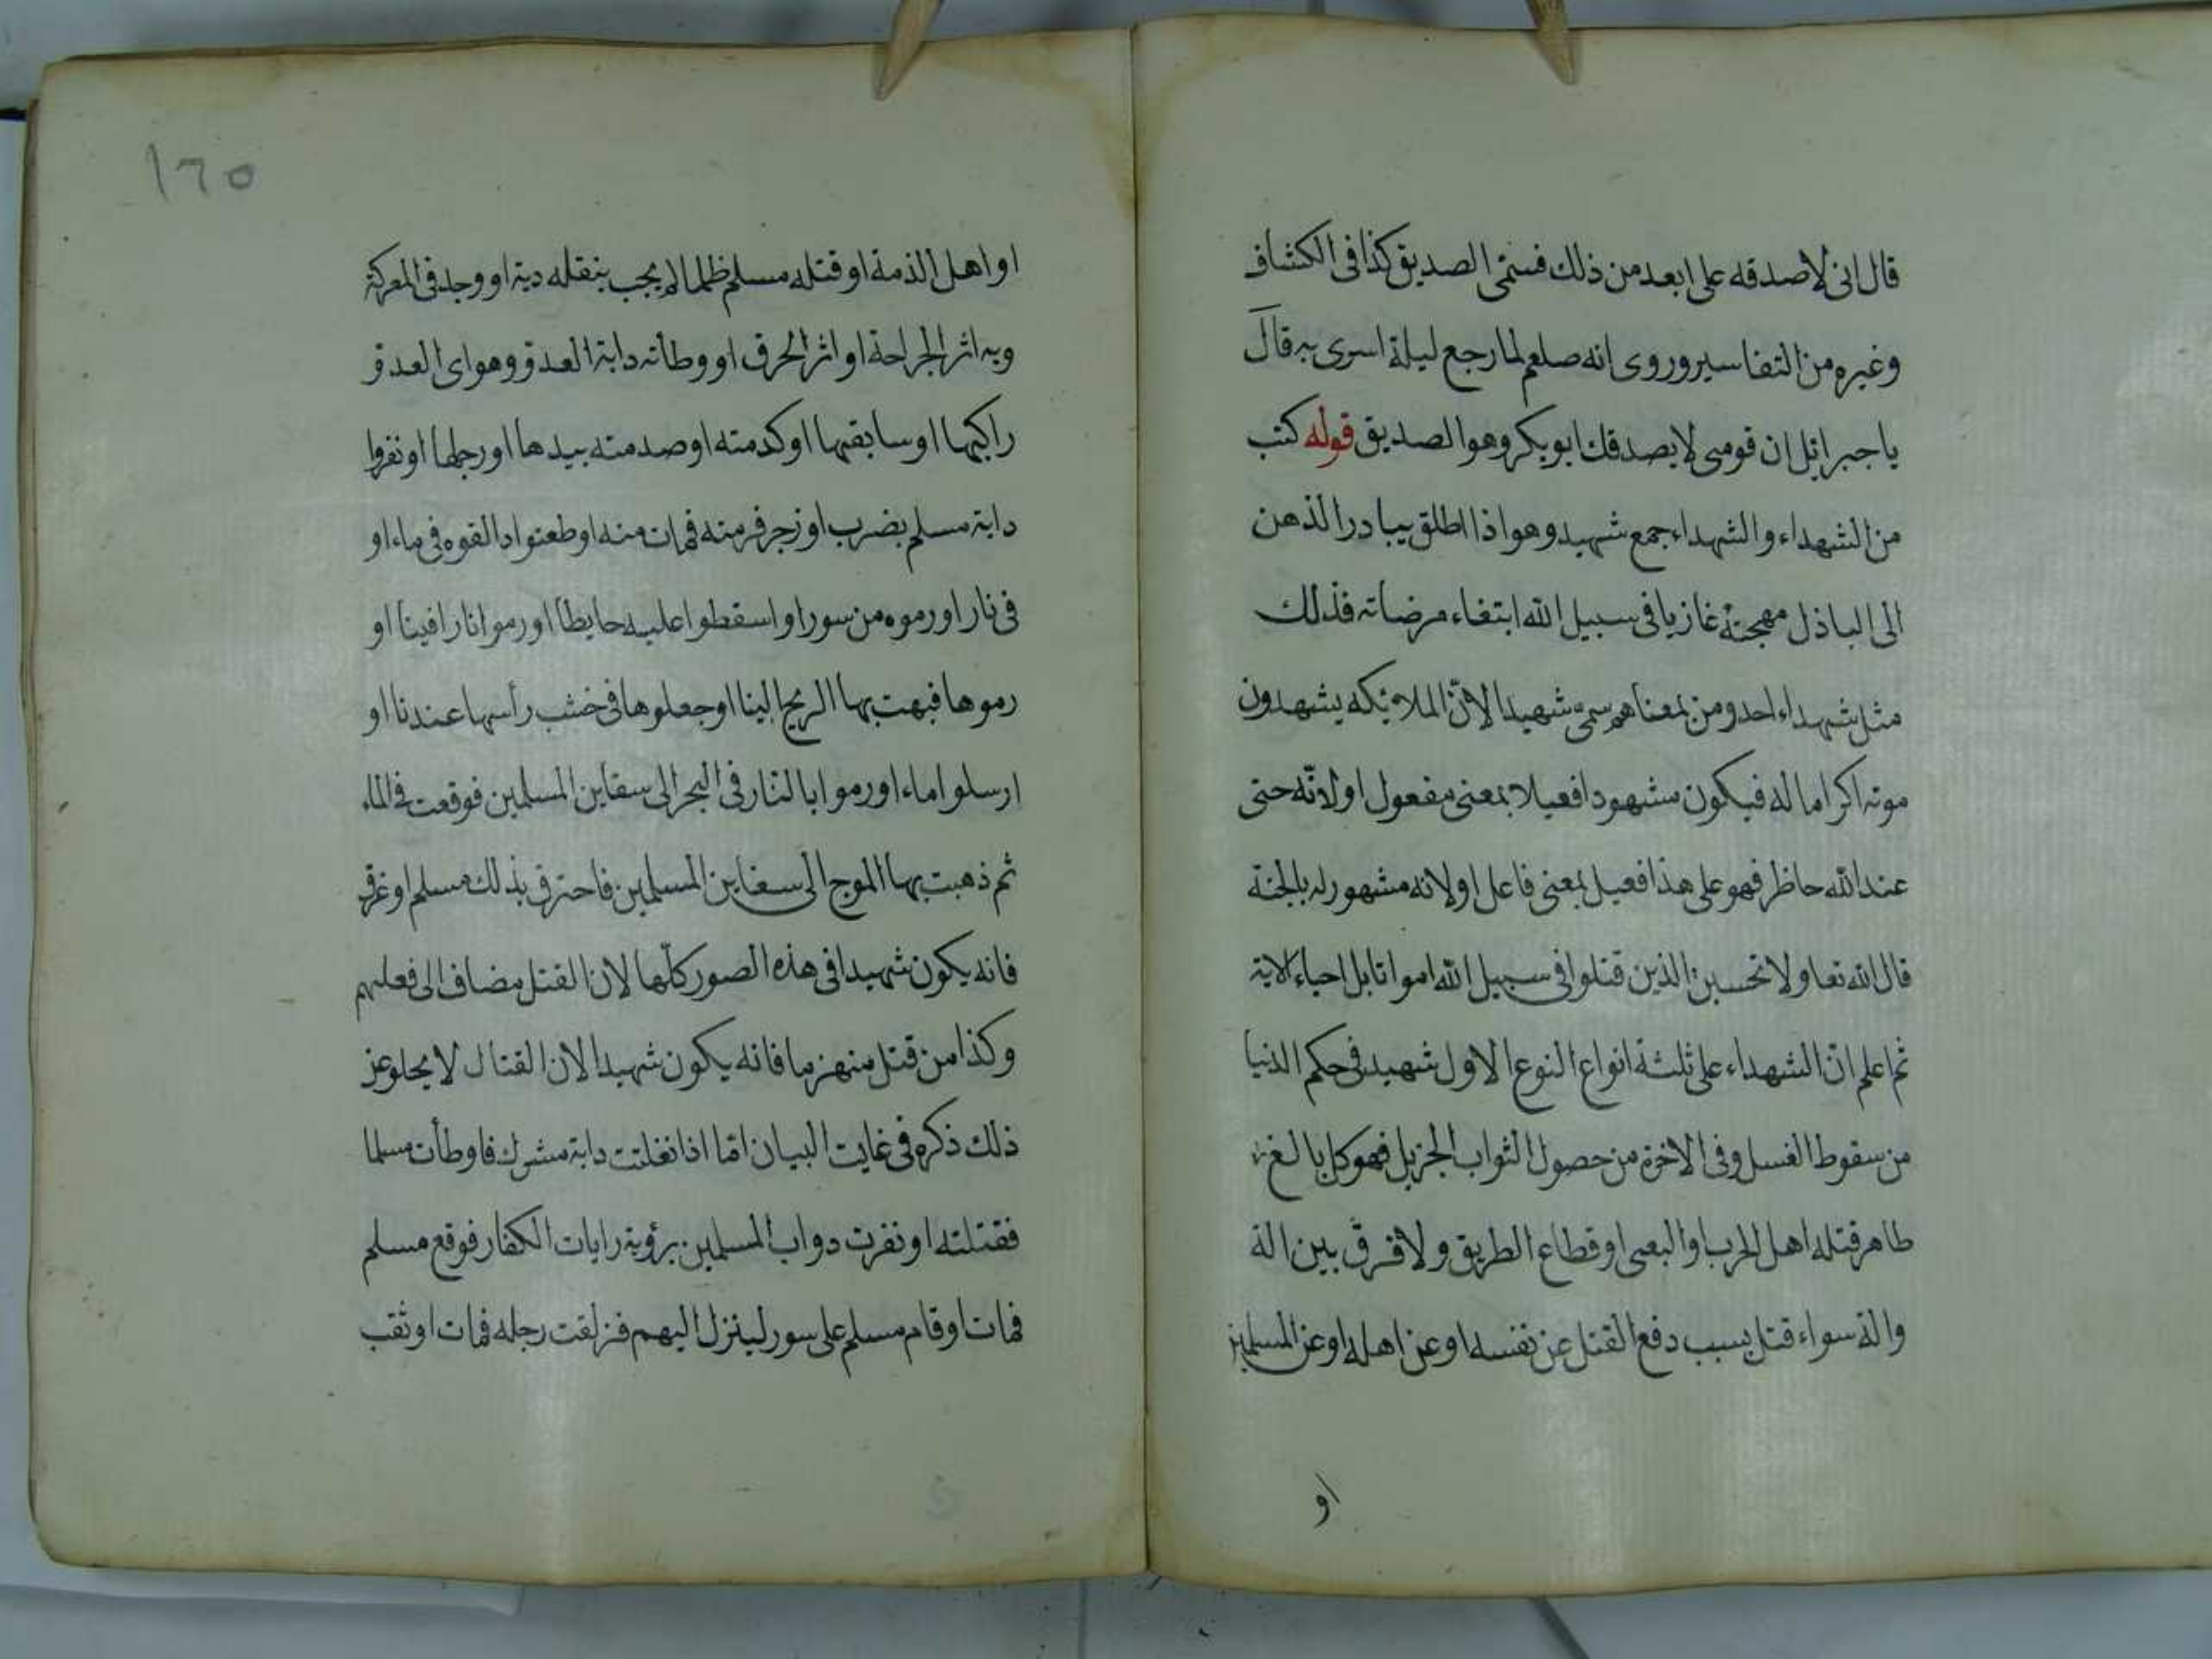 قال انى لاصدقه على ابعد من ذلك فسمّى الصديق كذا فى الكشاف
وغيره من التفاسير وروى انه صلعم لما رجع ليلة اسرى به قال
يا جبرائل ان قومى لا يصدقك ابو بكر وهو الصديق قوله كتب
من الشهداء والشهداء جمع شهيد وهو اذا اطلق يبادر الذهن
الى الباذل مهجته غازيا فى سبيل الله ابتغاء مرضاته فذلك
مثل شهداء احد ومن بمعناهم سمّى شهيدا لانّ الملائكه يشهدون
موته اكراما له فيكون مشهودا فعيلا بمعنى مفعول او لانّه حتى
عند الله حاظر فهو على هذا فعيل بمعنى فاعل او لانه مشهور له بالجنة
قال الله تعا ولا تحسبن الذين قتلوا فى سبيل الله امواتا بل احياء الاية
ثم اعلم انّ الشهداء على ثلثة انواع النوع الاول شهيد فى حكم الدنيا
من سقوط الغسل وفى الاخرة من حصول الثواب الجزيل فهو كل بالغ
طاهر قتله اهل الحرب او البعى او قطاع الطريق ولا فرق بين الة
والة سواء قتل بسبب دفع القتل عن نفسه او عن اهله او عن المسلمين
او
١٦٥
او اهل الذمة او قتله مسلم ظلما لا يجب بنقله دية او وجد فى المعركة
وبه اثر الجراحة او اثر الحرق او وطأته دابة العدو وهو اى العدو
راكبها او سابقها او كدمته او صدمته بيدها او رجلها او نفروا
دابة مسلم بضرب او زجر فرمته فمات منه او طعنوا دالقوه فى ماء او
فى نار او رموه من سور او اسقطوا عليه حايطا او رموا نارا فينا او
رموها فبهت بها الريح الينا او جعلوها فى خشب رأسها عندنا او
ارسلوا ماء او رموا بالنار فى البحر الى سفاين المسلمين فوقعت فى الماء
ثم ذهبت بها الموج الى سفاين المسلمين فاحترق بذلك مسلم او غرق
فانه يكون شهيدا فى هذه الصور كلّها لان القتل مضاف الى فعلهم
وكذا من قتل منهزما فانه يكون شهيدا لان القتال لا يخلو عن
ذلك ذكره فى غايت البيان امّا اذا نفلتت دابة مشرك فاوطأت مسلما
فقتلته او نفرت دواب المسلمين برؤية رايات الكفار فوقع مسلم
فمات او قام مسلم على سور لينزل اليهم فزلقت رجله فمات او ثقب